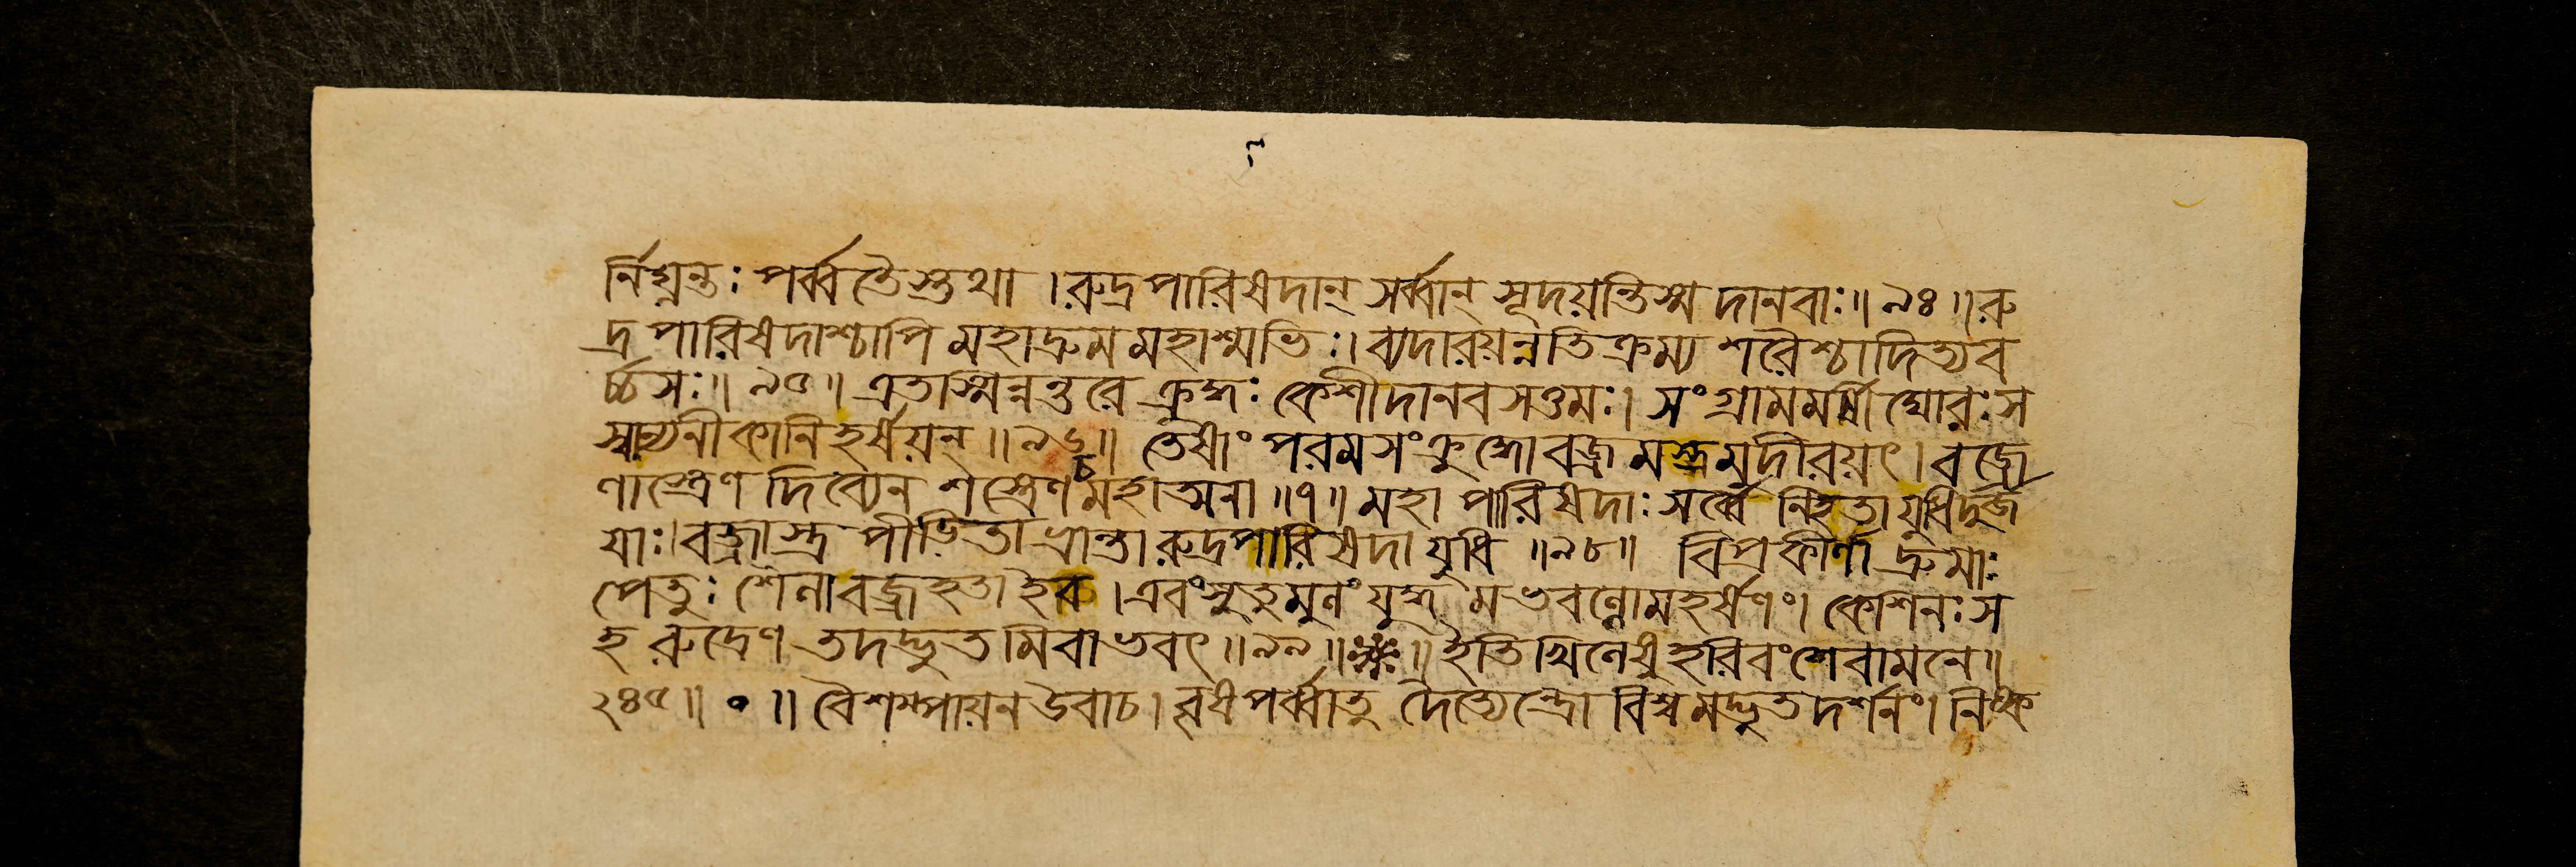 র্নিঘ্নন্তঃ পর্ব্বতৈস্তথা । রুদ্রপারিষদান্ সর্ব্বান্ সূদয়ন্তিস্ম দানবাঃ॥ ৯৪ ॥রু
দ্রপারিষদাশ্চাপি মহাদ্রুমমহাশ্মভিঃ। ব্যদারয়ন্নতিক্রম্য শরৈশ্চাদিত্যব
র্চ্চসঃ॥ ৯৫॥ এতাস্মিন্নন্তরে ক্রুদ্ধঃ কেশীদানবসত্তমঃ। সংগ্রামমর্ষী ঘোরঃস
স্বান্যনীকানিহর্ষয়ন্ ॥৯৬॥ তেষাং পরমসংক্রুদ্ধোবজ্রমস্ত্রমুদীরয়ৎ। বজ্রে
ণাস্ত্রেণ দিব্যেন শস্ত্রেণচমহাত্মনা ॥৭॥ মহাপারিষদাঃ সর্ব্বে নিহতা যুধিদুর্জ
যাঃ।বজ্রাস্ত্র পীডিতা ভ্রান্তা রুদ্রপারিষদা যুধি ॥৯৮॥ বিপ্রকীর্ণা দ্রুমাঃ
পেতুঃ শেলাবজ্রহতা ইব । এবংসুতুমুলং যুদ্ধমভবল্লোমহর্ষণং। কেশিনঃ স
হ রুদ্রেণ তদদ্ভুতমিবাভবৎ॥৯৯॥ ॥ইতিখিলেষুহরিবংশেবামনে॥
২৪৫॥ ০ ॥ বৈশম্পায়ন উবাচ। বৃষপর্ব্বাতু দৈত্যেন্দ্রো বিশ্বমদ্ভুতদর্শনং। নিষ্ক